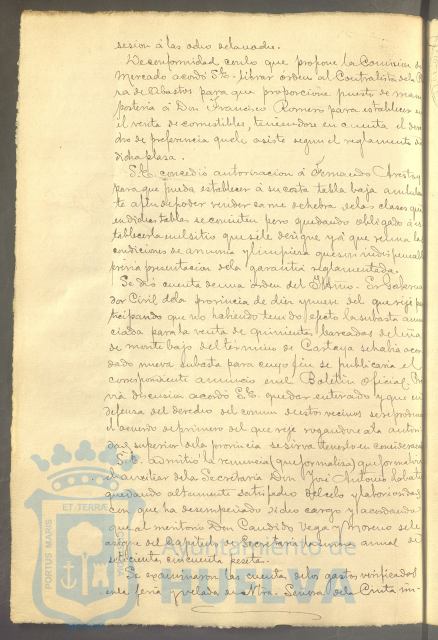 sesion á las ocho de la noche.
De conformidad con lo que propone la Comision de
Mercado acordó S.E. librar órden al Contratista de la Pla
za de Abastos para que proporcione puesto de mam
postería á Don Francisco Romero para establecer en
él venta de comestibles, teniendose en cuenta el dere
cho de preferencia que le asiste segun el reglamento de
dicha plaza.
S.E. concedió autorizacion á Fernando
para que pueda establecer á su costa tabla baja ambulan
te á fin de poder vender carne de hebra, de las clases que
en dichas tablas se consienten pero quedando obligado á es
tablecerla en el sitio que se le designe y á que reuna las
condiciones de armonía y limpieza que son indispensables
prévia presentacion de la garantía reglamentaria.
Se dió cuenta de una órden del Iltmo. Sr. Goberna
dor Civil de la provincia de diez y nueve del que rije par
ticipando que no habiendo tenido efecto la subasta anun
ciada para la venta de quinientas barcadas de leña
de monte bajo del término de Cartaya se habia acor
dado nueva subasta para cuyo fin se publicaría el
correspondiente anuncio en el Boletin Oficial. Pré
via discusion acordó S.E. quedar enterado y que en
defensa del derecho del comun de estos vecinos se reproduzca
el acuerdo de primero del que rije rogandose á la autori
dad superior de la provincia se sirva tenerlo en consideracion
S.E. admitió la renuncia (que formaliza) que formaliza
el auxiliar de la Secretaría Don José Antonio
quedando altamente satisfecho del celo y laboriosidad
con que ha desempeñado dicho cargo y acordando
que al meritorio Don Candido Vega y Moreno se le
asigne del Capítulo de Secretaría la suma anual de
setecientas cincuenta pesetas.
Se examinaron las cuentas de los gastos verificados
en la feria y velada de Ntra. Señora de la Cinta im-
PORTUS MARIS ET TERRAE
Ayuntamiento de
HUELVA